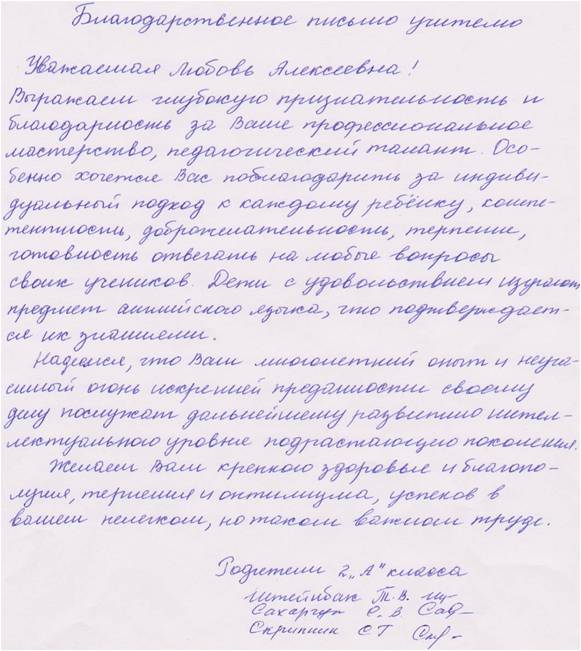 Благодарственное письмо учителю
Уважаемая Любовь Алексеевна!
Выражаем глубокую признательность и
благодарность за Ваше профессиональное
мастерство, педагогический талант. Осо-
бенно хочется Вас поблагодарить за индиви-
дуальный подход к каждому ребёнку, компе-
тентность, доброжелательность, терпение,
готовность отвечать на любые вопросы
своих учеников. Дети с удовольствием изучают
предмет английского языка, что подтверждает-
ся их знаниями.
Надеемся, что Ваш многолетний опыт и неуга-
симый огонь искренней преданности своему
делу послужат дальнейшему развитию интел-
лектуального уровня подрастающего поколения.
Желаем Вам крепкого здоровья и благопо-
лучия, терпения и оптимизма, успехов в
вашем нелегком, но таком важном труде.
Родители 2 „А" класса
Т.В.
С.В.
Скрипник СТ